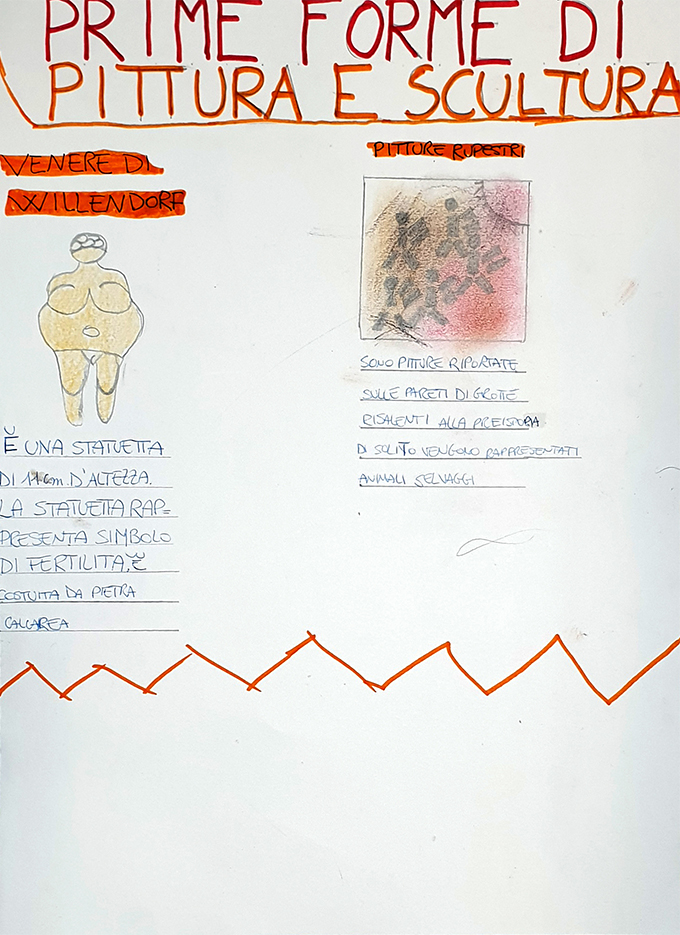 PRIME FORME DI
PITTURA E SCULTURA
VENERE DI
WILLENDORF
È UNA STATUETTA
DI 11 cm D'ALTEZZA.
LA STATUETTA RAP=
PRESENTA SIMBOLO
DI FERTILITA, È
COSTUITA DA PIETRA
CALCAREA
PITTURE RUPESTRI
SONO PITTURE RIPORTATE
SULLE PARETI DI GROTTE
RISALENTI ALLA PREISTORIA
DI SOLITO VENGONO RAPPRESENTATI
ANIMALI SELVAGGI